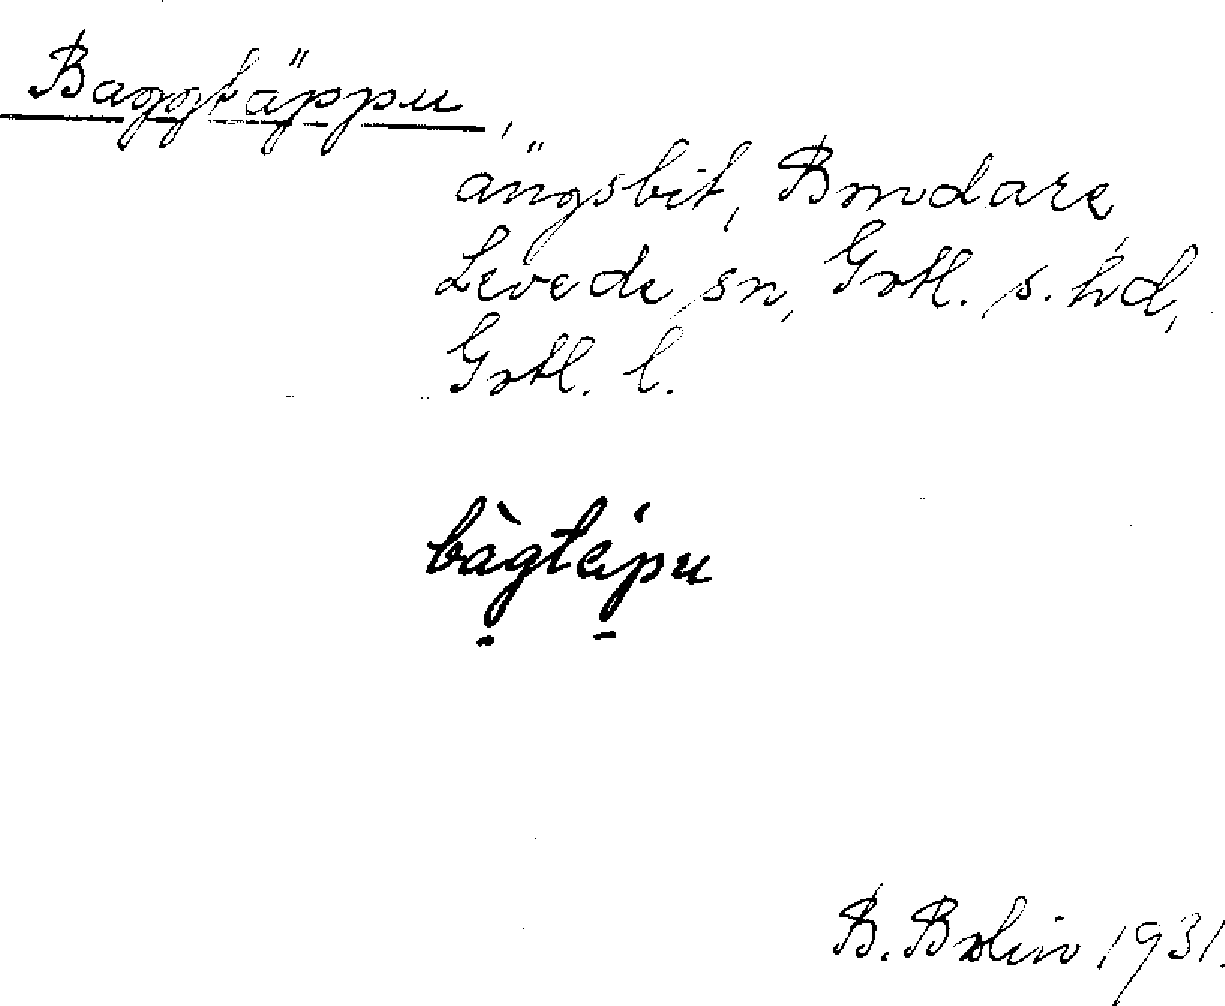 Baggtäppu,
ängsbit, Bondarve,
Levede sn, Gotl. s. hd,
Gotl. l.
bàgtépu
B. Bolin 1931.